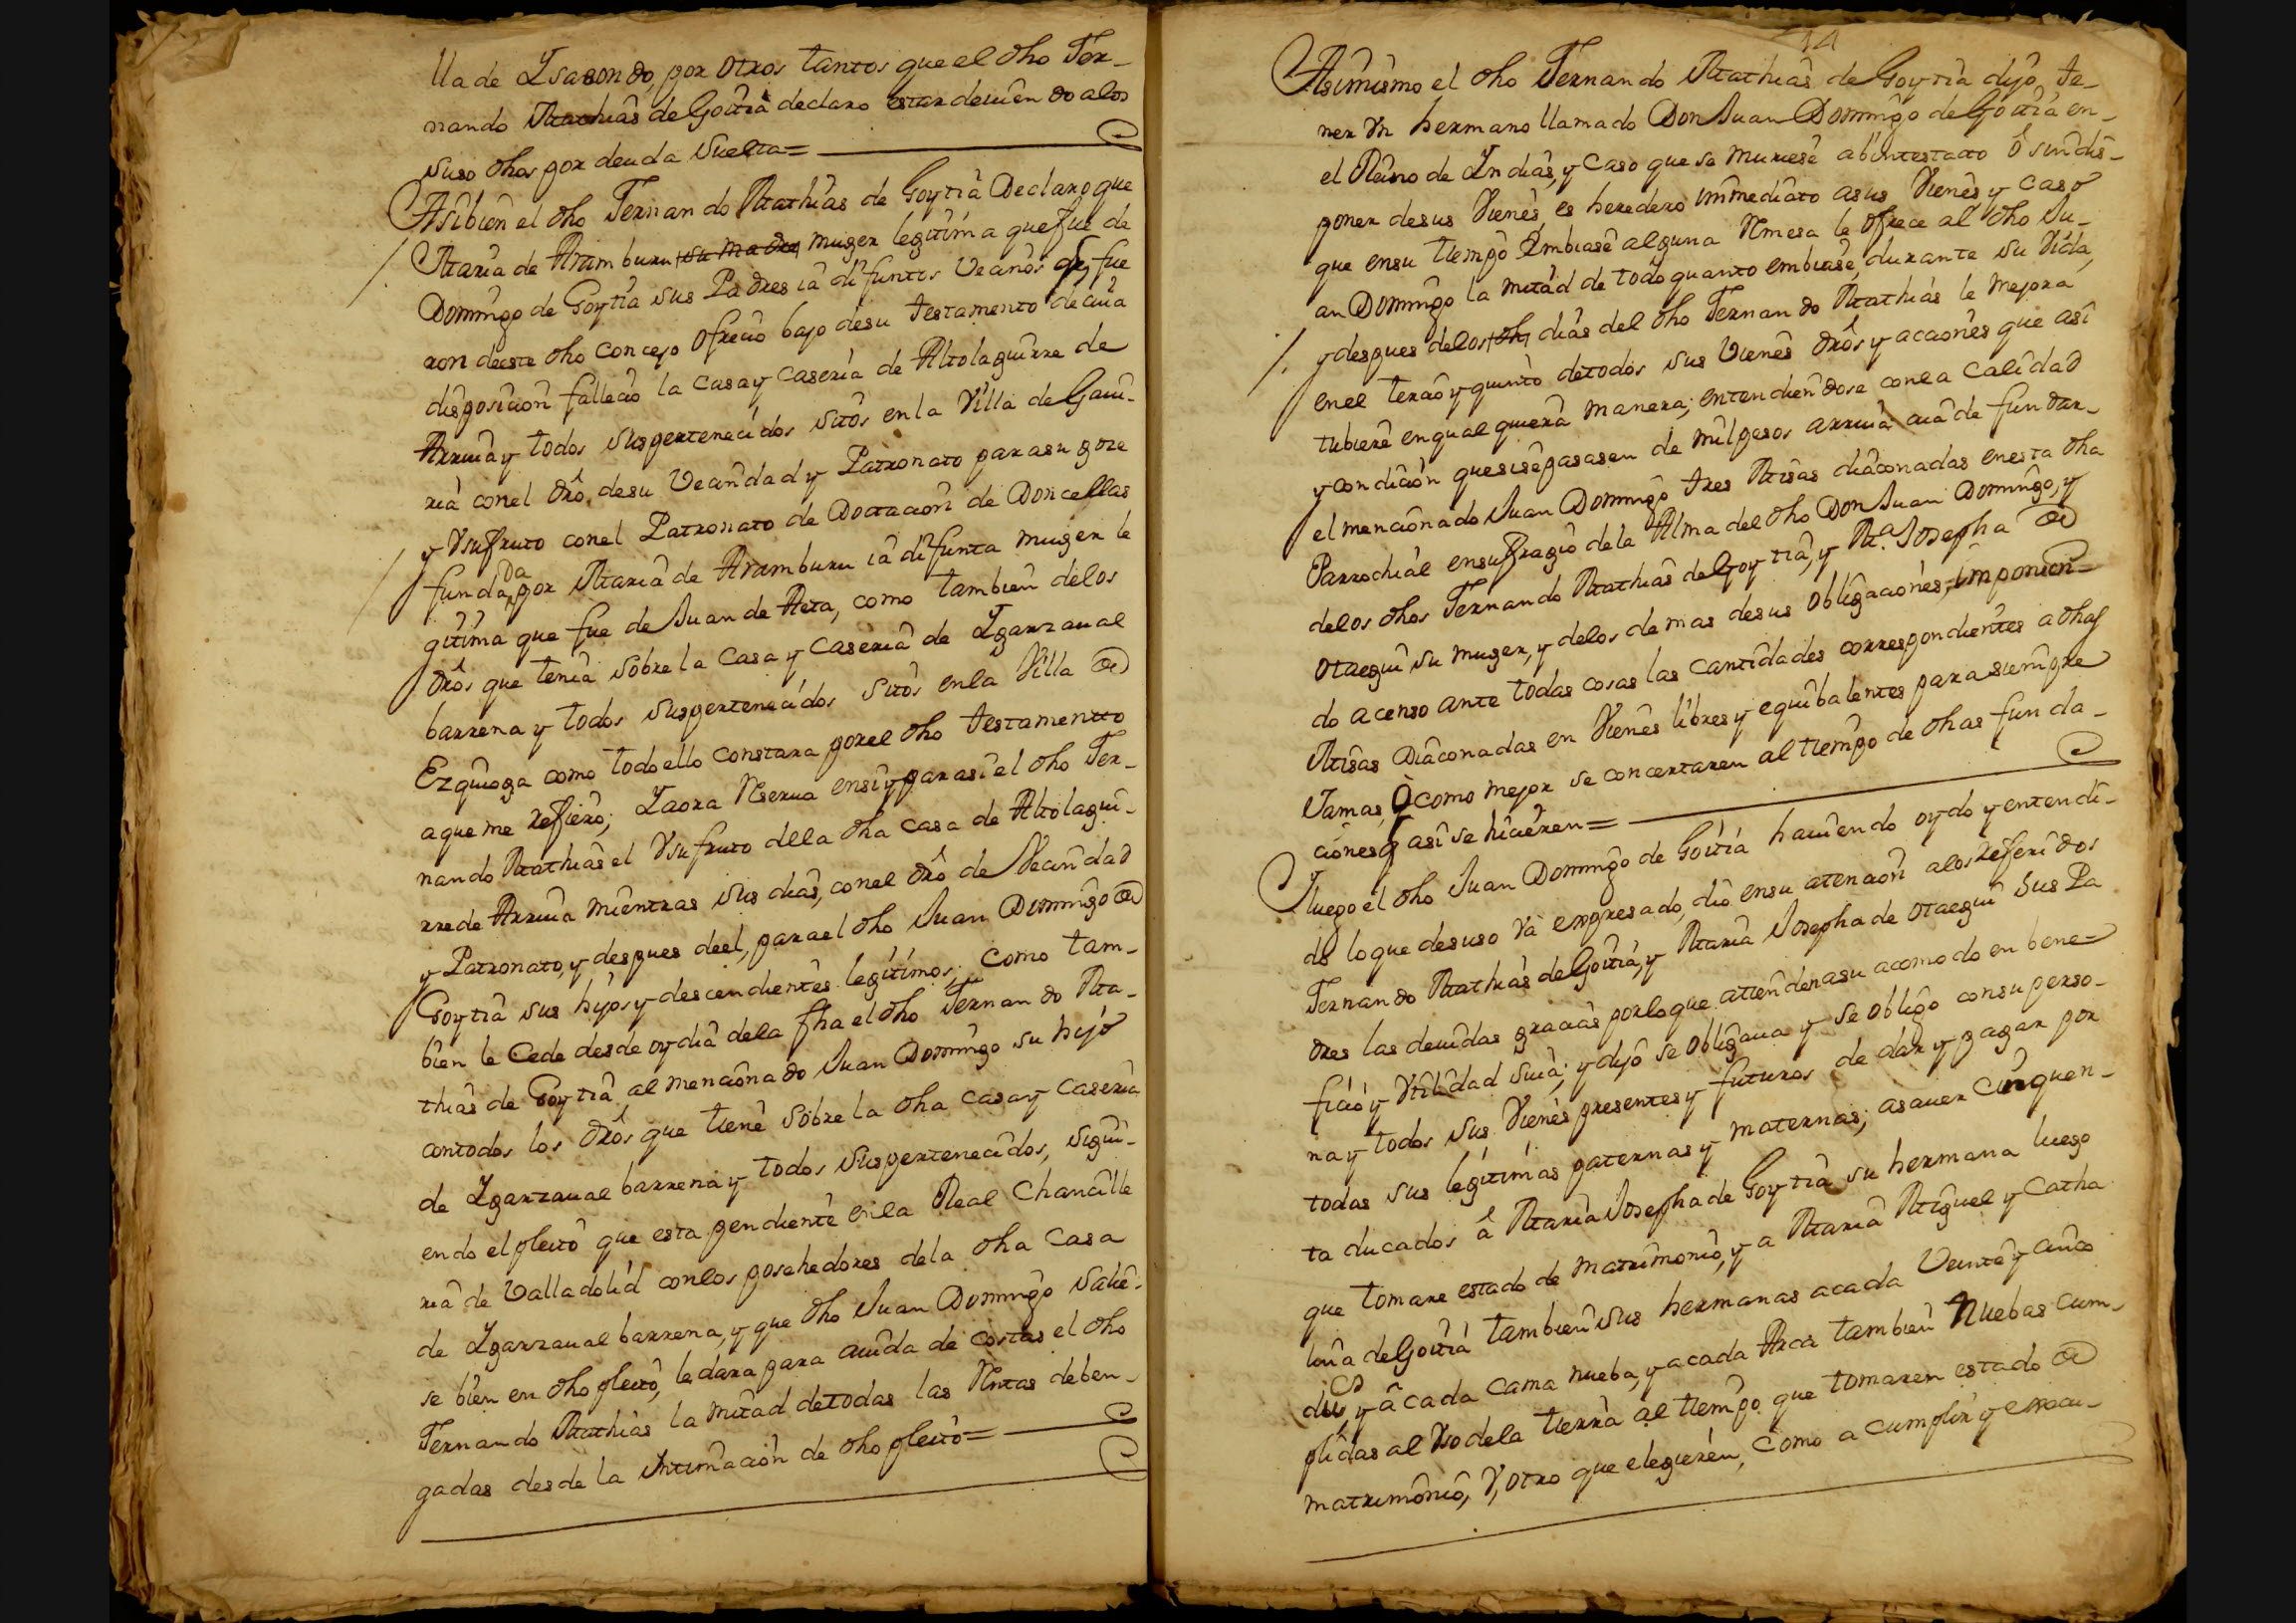 lla de Ysasondo, por otros tantos que el dho Fer-
nando Mathias de Goitia declaro estar deuiendo a los
suso dhos por deuda suelta=
Asibien el dho Fernando Mathias de Goytia Declaro que
Maria de Aramburu su madre muger legitima que fue de
Domingo de Goytia sus Padres ia difuntos Vecinos q fue
ron deeste dho concejo ofrecio bajo de su testamento de cuia
disposicion fallecio la casa y caseria de Altolaguirre de
Arruia y todos sus pertenecidos sitos en la Villa de Gaui-
ria con el dro de su Vecindad y Patronato para su goze
y Vsufruto con el Patronato de Doctacion de Doncellas
funda da por Maria de Aramburu ia difunta muger le
gitima que fue de Juan de Aeta, como tambien de los
dros que tenia sobre la casa y caseria de Ygarzaual
barrena y todos sus pertenecidos sitos en la Villa de
Ezquioga como todo ello constara por el dho testamento
a que me refiero; Y aora Reserua en si y para si el dho Fer-
nando Mathias el Vsufruto della dha casa de Altolagui-
rre de Arruia mientras sus dias, con el dro de Vecindad
y Patronato, y despues de el, para el dho Juan Domingo de
Goytia sus hijos y descendientes legitimos; como tam-
bien le Cede desde oy dia dela fha el dho Fernando Ma-
thias de Goytia al mencionado Juan Domingo su hijo
con todos los dros que tiene sobre la dha casa y caseria
de Ygarzaual barrena y todos sus pertenecidos, sigui-
endo el pleito que esta pendiente en la Real Chancille
ria de Valladolid con los posehedores dela dha casa
de Ygarzaual barrena, y que dho Juan Domingo salie-
se bien en dho pleito, le dara para auida de costas el dho
Fernando Mathias la mitad de todas las Rentas deben-
gadas desde la intimacion de dho pleito=
14
Asimismo el dho Fernando Mathias de Goytia dijo, te-
ner Vn hermano llamado Don Juan Domingo de Goitia en-
el Reino de Yndias, y caso que se muriese abintestato o sin dis-
poner de sus Vienes, es heredero immediato a sus Vienes y caso
que en su tiempo Embiase alguna Remesa le ofrece al dho Ju-
an Domingo la mitad de todo quanto embiase, durante su Vida,
y despues de los dh dias del dho Fernando Mathias le mejora
en el tercio y quinto de todos sus Vienes dros y acciones que asi
tubiere en qual quiera manera; entendiendose con la calidad
y condicion que si se pasasen de mil pesos arriua aia de fundar-
el mencionado Juan Domingo tres Misas diaconadas en esta dha
Parrochial en sufragio de la Alma del dho Don Juan Domingo, y
de los dhos Fernando Mathias de Goytia, y Ma. Josepha de
Otaegui su muger, y de los de mas de sus obligaciones, imponien=
do a censo ante todas cosas las cantidades correspondientes a dhas
Misas Diaconadas en Vienes libres y equibalentes para siempre
Jamas, O como mejor se concertaren al tiempo de dhas funda-
ciones q asi se hicieren=
Y luego el dho Juan Domingo de Goitia hauiendo oydo y entendi-
do lo que desuso va expresado, dio en su atencion a los referidos
Fernando Mathias de Goitia, y Maria Josepha de Otaegui sus Pa
dres las deuidas gracias por lo que atienden a su acomodo en bene=
ficio y Vtilidad suia; y dijo se obligaua y se obligo con su perso-
na y todos sus Vienes presentes y futuros de dar y pagar por
todas sus legitimas paternas y maternas; a sauer cinquen-
ta ducados a Maria Josepha de Goytia su hermana luego
que tomare estado de matrimonio, y a Maria Miguel y Catha
lina de Goitia tambien sus hermanas a cada Veinte y cinco
dus y a cada cama nueba, y a cada Arca tambien Nuebas cum-
plidas al Vso dela tierra al tiempo que tomaren estado de
matrimonio, V, otro que eligieren, como a cumplir y execu-